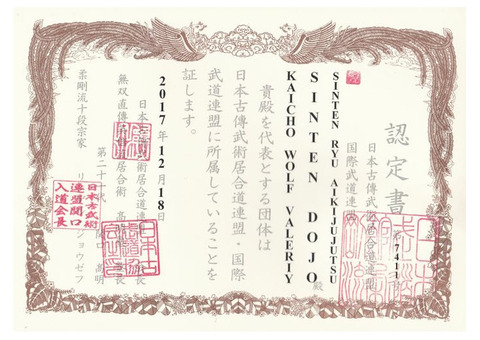 認定書
日本古傳武術居合道連盟
国際武道連盟
第7411号
SINTEN RYU AIKIJUJUTSU
SINTEN DOJO
KAICHO WOLF VALERIY
殿
貴殿を代表とする団体は
日本古傳武術居合道連盟・国際
武道連盟に所属していることを
証します。
2017年12月18日
日本古傳武術居合道連盟
無双直傳英信流居合術
第二十一代
関口高明
柔剛流十段宗家
ジョウゼフ
日本古武術
連盟関口
入道会長